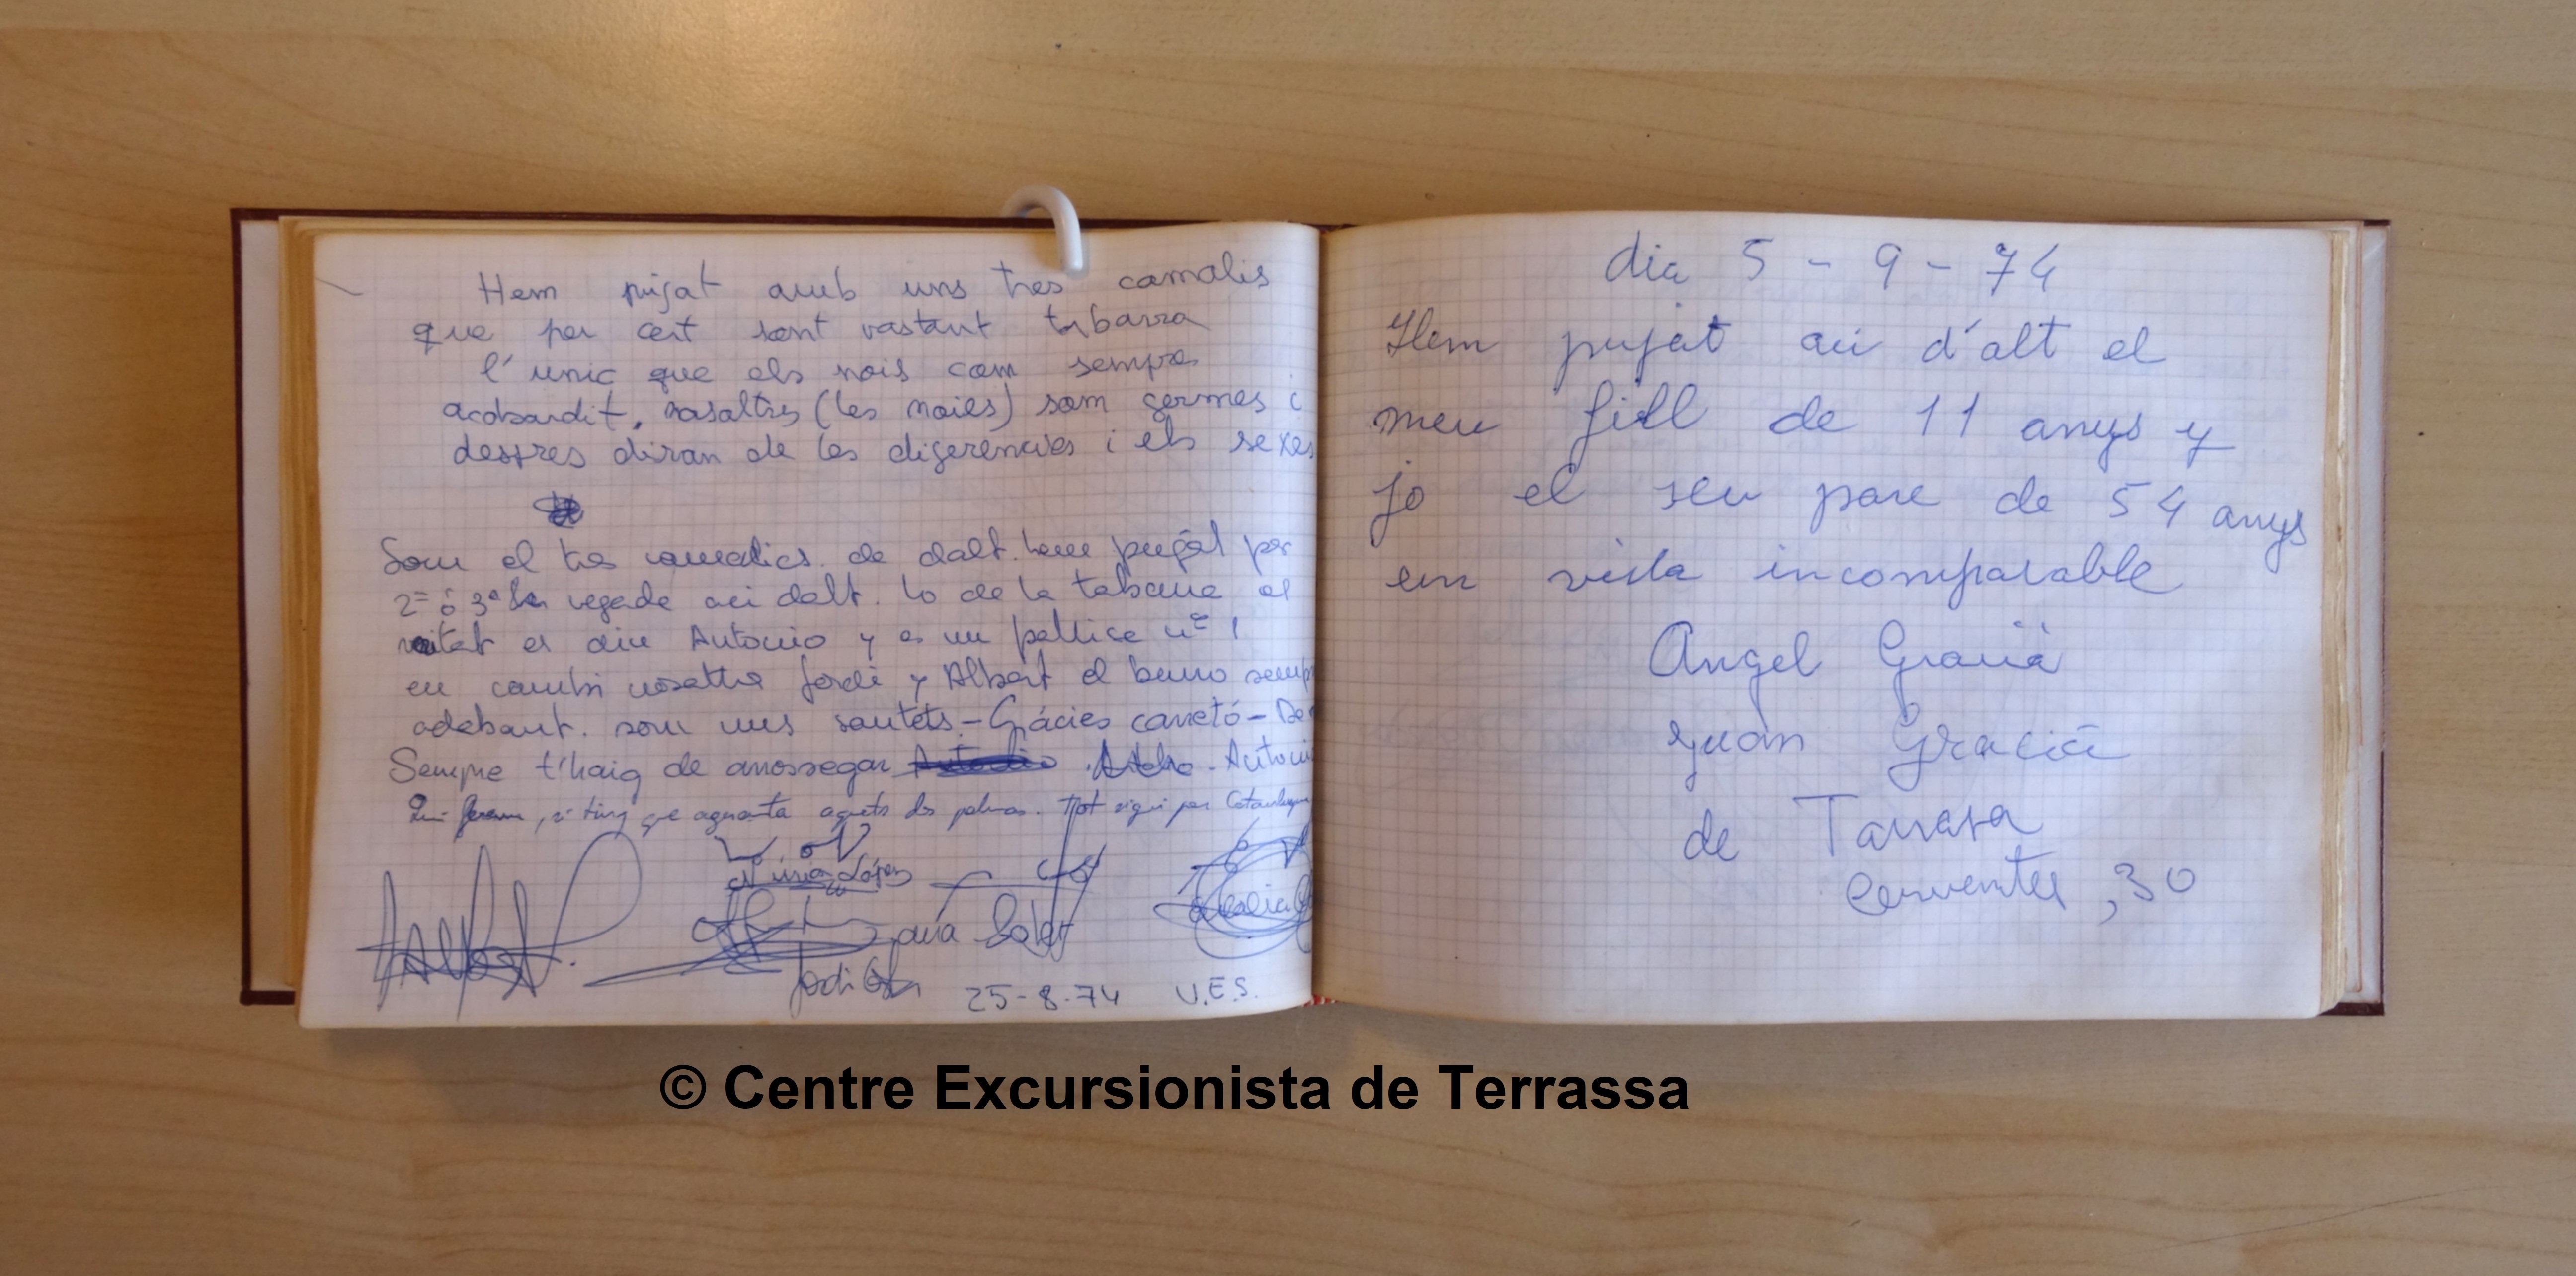 Hem pujat amb uns tres camalis
que per cert sont vastant tabarra
l'unic que els nois com sempre
acobardit, nosaltres (les noies) som germes i
despres diran de les diferencies i els sexes
Som el tres de dalt. hem pujat per
2ª ó 3ª vegade aci dalt. lo de la tabarra el
es diu Antonio y es un pallice nº 1
en cambi nosaltres Jordi y Albert el bueno
adebant. som uns santets - Gràcies carretó -
Sempre t'haig de arrossegar Antonio
que aguanta aquets dos palmas. Tot sigui per Catalunya
Núria López
Jordi
25-8-74 U.E.S.
dia 5-9-74
Hem pujat aci d'alt el
meu fill de 11 anys y
jo el seu pare de 54 anys
em vista incomparable
Angel Gracià
Juan Gracià
de Tarrasa
Cerventes, 30
© Centre Excursionista de Terrassa